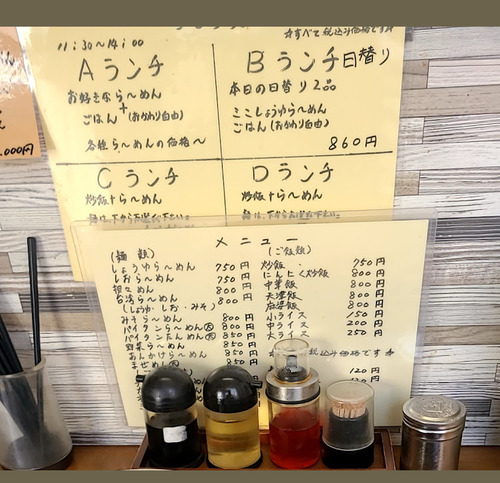 11:30~14:00
☆すべて税込み価格です☆
Aランチ
お好きなら~めん
+
ごはん(おかわり自由)
各種ら~めんの価格~
Bランチ日替り
本日の日替り2品
ミニしょうゆら~めん
ごはん(おかわり自由)
860円
Cランチ
炒飯+ら~めん
Dランチ
炒飯+ら~めん
,000円
メニュー
(麺類)
しょうゆら~めん 750円
しおら~めん 750円
担々めん 800円
台湾ら~めん 800円
(しょうゆ・しお・みそ)
みそら~めん 800円
パイタンら~めん 800円
パイタンたんめん 850円
野菜ら~めん 850円
あんかけら~めん 850
まぜめん
(ご飯類)
炒飯 750円
にんにく炒飯 800円
中華飯 800円
天津飯 800円
麻婆飯 800円
小ライス 150円
中ライス 200円
大ライス 250円
税込み価格です☆
120円